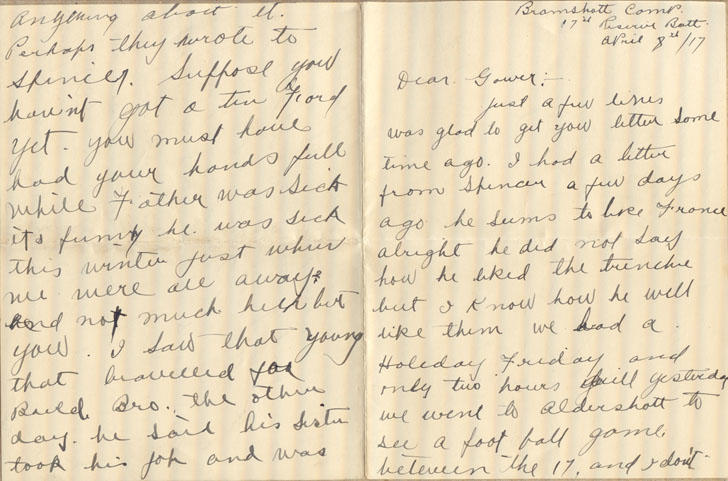 Bramshott Camp.
17th Reserve Batt.
April 8th/17
Dear Gower:-
Just a few lines
was glad to get you letter some
time ago. I had a letter
from Spencer a few days
ago he seems to like France
alright he did not say
how he liked the trenche
but I know how he will
like them we had a
Holiday Friday and
only two hours drill yesterday
we went to Aldershott to
see a foot ball game.
between the 17, and I don't
anything about it.
Perhaps they wrote to
Spencer. Suppose you
havint got a tin Ford
yet. you must have
had your hands full
while Father was sick
its funny he was sick
this winter just when
we were all away.
and not much help but
you. I saw that young
that travelled for
Baird Bro. the other
day. he said his sister
took his job and was